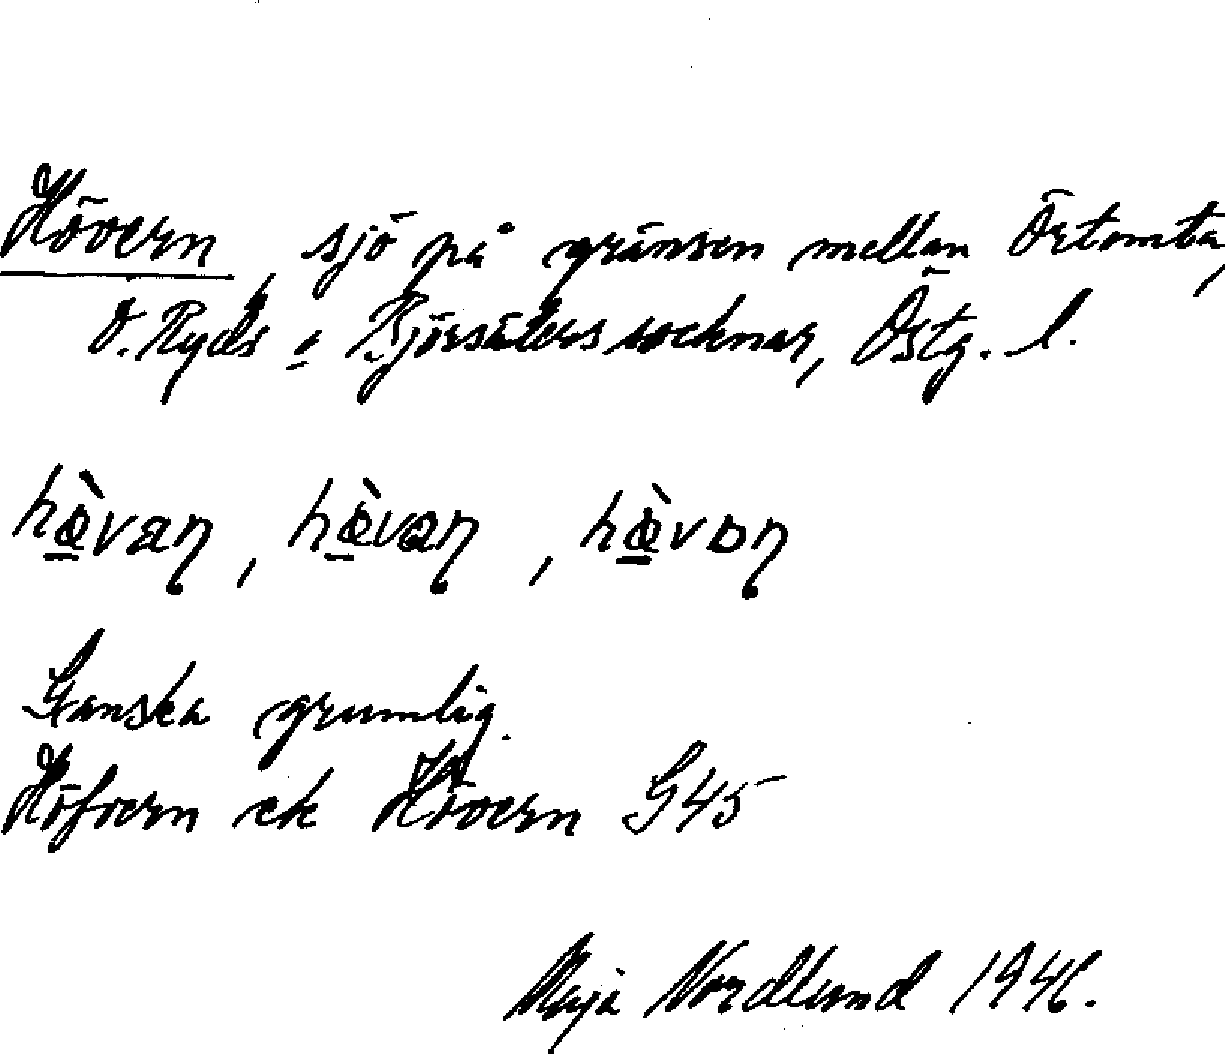 Hövern, sjö på gränsen mellan Örtomta,
Ö. Ryds o Björsäters socknar, Östg. l.
hæ̀van, hæ̀vɑn, hæ̀vɒn
Ganska grumlig.
Höfvern ek Hövern G45
Maja Nordlund 1946.